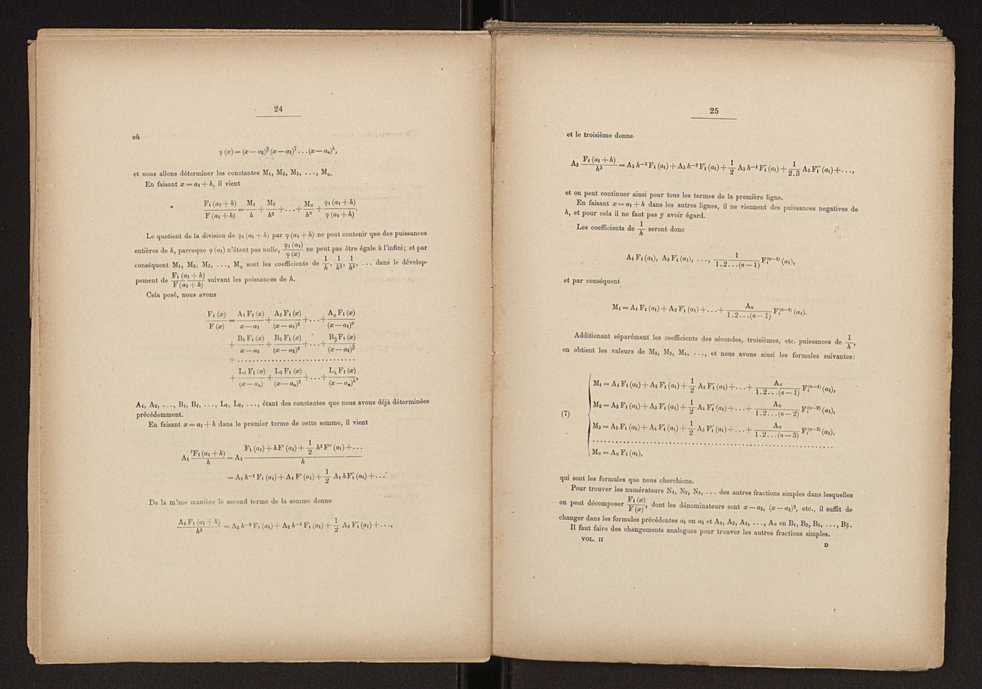 24
où
φ (x) = (x — a₂)^β (x — a₃)^γ . . . (x — aₙ)^λ,
et nous allons déterminer les constantes M₁, M₂, M₃, . . . , Mα.
En faisant x = a₁ + h, il vient
F₁ (a₁ + h) / F (a₁ + h) = M₁ / h + M₂ / h² + . . . + Mα / hα + φ₁ (a₁ + h) / φ (a₁ + h)
Le quotient de la division de φ₁ (a₁ + h) par φ (a₁ + h) ne peut contenir que des puissances
entières de h, parceque φ (a₁) n'étant pas nulle, φ₁ (a₁) / φ (x) ne peut pas être égale à l'infini; et par
conséquent M₁, M₂, M₃, . . . , Mα sont les coefficients de 1/h, 1/h², 1/h³, . . . dans le dévelop-
pement de F₁ (a₁ + h) / F (a₁ + h) suivant les puissances de h.
Cela posé, nous avons
F₁ (x) / F (x) = A₁ F₁ (x) / (x — a₁) + A₂ F₁ (x) / (x — a₁)² + . . . + Aα F₁ (x) / (x — a₁)^α
+ B₁ F₁ (x) / (x — a₂) + B₂ F₁ (x) / (x — a₂)² + . . . + Bβ F₁ (x) / (x — a₂)^β
+ . . . . . . . . . . . . . . . . . . . . . . . .
+ L₁ F₁ (x) / (x — aₙ) + L₂ F₁ (x) / (x — aₙ)² + . . . + Lλ F₁ (x) / (x — aₙ)^λ,
A₁, A₂, . . . , B₁, B₂, . . . , L₁, L₂, . . . , étant des constantes que nous avons déjà déterminées
précédemment.
En faisant x = a₁ + h dans le premier terme de cette somme, il vient
A₁ F₁ (a₁ + h) / h = A₁ (F₁ (a₁) + h F' (a₁) + 1/2 h² F'' (a₁) + . . .) / h
= A₁ h⁻¹ F₁ (a₁) + A₁ F' (a₁) + 1/2 A₁ h F₁'' (a₁) + . . .
De la même manière le second terme de la somme donne
A₂ F₁ (a₁ + h) / h² = A₂ h⁻² F₁ (a₁) + A₂ h⁻¹ F₁' (a₁) + 1/2 A₂ F₁'' (a₁) + . . . ,
25
et le troisième donne
A₃ F₁ (a₁ + h) / h³ = A₃ h⁻³ F₁ (a₁) + A₃ h⁻² F₁' (a₁) + 1/2 A₃ h⁻¹ F₁'' (a₁) + 1/2.3 A₃ F₁''' (a₁) + . . . ,
et on peut continuer ainsi pour tous les termes de la première ligne.
En faisant x = a₁ + h dans les autres lignes, il ne viennent des puissances negatives de
h, et pour cela il ne faut pas y avoir égard.
Les coefficients de 1/h seront donc
A₁ F₁ (a₁), A₂ F₁' (a₁), . . . , 1 / 1.2 . . . (α — 1) F₁^(α—1) (a₁),
et par conséquent
M₁ = A₁ F₁ (a₁) + A₂ F₁' (a₁) + . . . + Aα / 1.2 . . . (α — 1) F₁^(α—1) (a₁).
Additionant séparément les coefficients des sécondes, troisièmes, etc. puissances de 1/h,
on obtient les valeurs de M₂, M₃, M₄, . . . , et nous avons ainsi les formules suivantes:
M₁ = A₁ F₁ (a₁) + A₂ F₁' (a₁) + 1/2 A₃ F₁'' (a₁) + . . . + Aα / 1.2 . . . (α — 1) F₁^(α—1) (a₁),
M₂ = A₂ F₁ (a₁) + A₃ F₁' (a₁) + 1/2 A₄ F₁'' (a₁) + . . . + Aα / 1.2 . . . (α — 2) F₁^(α—2) (a₁),
(7)
M₃ = A₃ F₁ (a₁) + A₄ F₁' (a₁) + 1/2 A₅ F₁'' (a₁) + . . . + Aα / 1.2 . . . (α — 3) F₁^(α—3) (a₁),
. . . . . . . . . . . . . . . . . . . . . . . . . . . . . . . . . . . . . . . .
Mα = Aα F₁ (a₁),
qui sont les formules que nous cherchions.
Pour trouver les numérateurs N₁, N₂, N₃, . . . des autres fractions simples dans lesquelles
on peut décomposer F₁ (x) / F (x), dont les dénominateurs sont x — a₂, (x — a₂)², etc., il suffit de
changer dans les formules précédentes a₁ en a₂ et A₁, A₂, A₃, . . . , Aα en B₁, B₂, B₃, . . . , Bβ.
Il faut faire des changements analogues pour trouver les autres fractions simples.
VOL. II
D